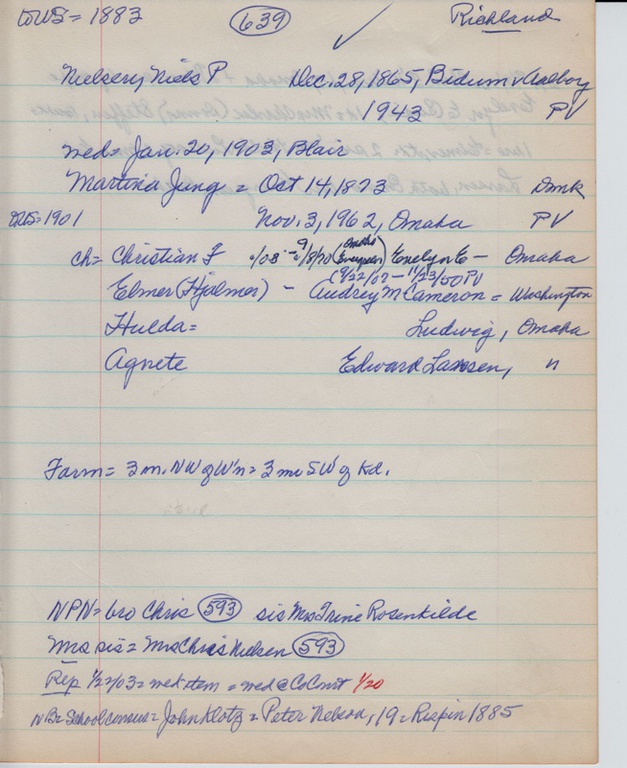 to US = 1883 639 Richland
Nielsen, Niels P Dec. 28, 1865, Bidum v Aalborg
1943 PV
wed = Jan. 20, 1903, Blair
Martina Jung = Oct 14, 1873 Dmk
to US = 1901 Nov. 3, 1962, Omaha PV
ch = Christian F 9/8/70 (Omaha Evergreen) Evelyn E - Omaha
(9/22/07 - 11/23/50 PV
Elmer (Hjalmer) - Audrey McCameron = Washington
Hulda = Ludwig, Omaha
Agnete Edward Larsen, "
Farm = 3 m. NW of W'n = 3 mi SW of Kd.
NPN = bro Chris 593 sis Mrs Trine Rosenkilde
Mrs sis = Mrs Chris Nielsen 593
Rep 1/22/03 = wed item = wed @ Co Court 1/20
NB = School census = John Klotz = Peter Nelson, 19 = Rispin 1885